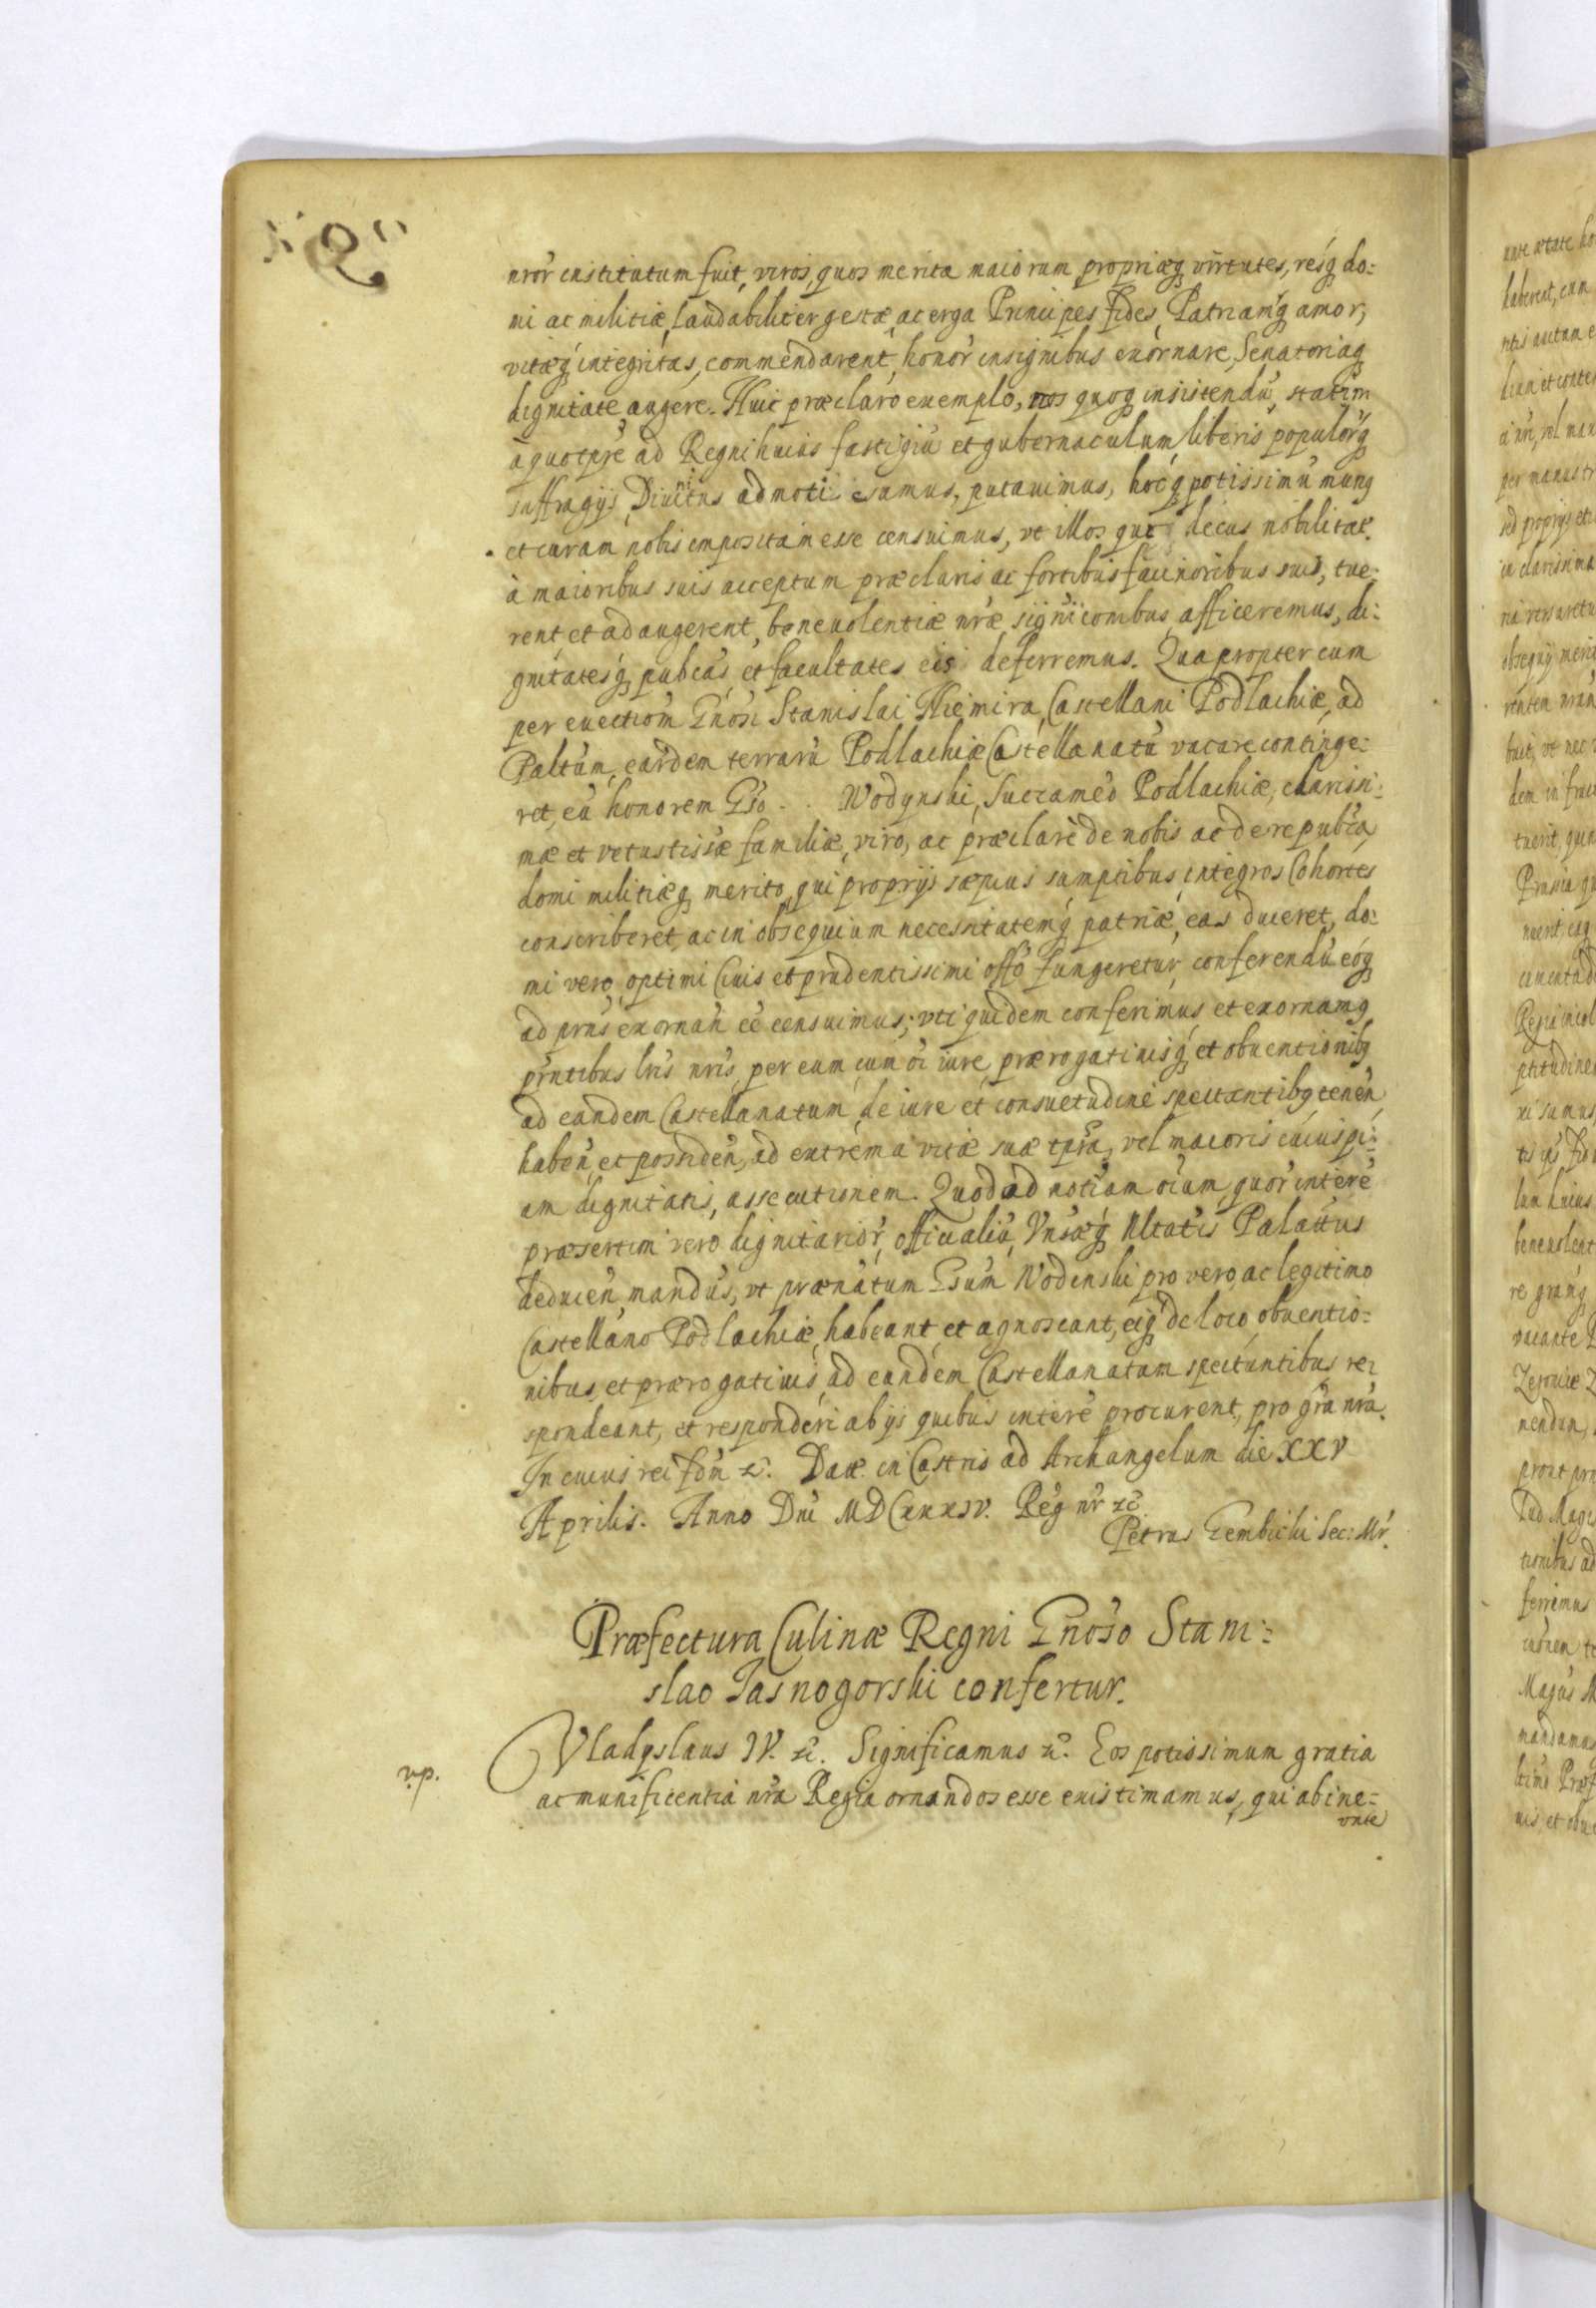 nror̃ institutum fuit, viros, quos merita maiorum propriæq virtutes, resq do:
mi ac militiæ laudabiliter gestæ, ac erga Principes fides, Patriamq amor,
vitæq integritas, commendarent, honor̃ insignibus exornare, Senatoriaq
dignitate augere. Huic præclaro exemplo, nos quoq insistendũ, statim
à quo tpre ad Regni huius fastigiũ et gubernaculum, liberis populorq
suffragijs Diuinitus admoti sumus, putauimus, hocq potissimũ munq
et curam nobis impositam esse censuimus, vt illos qui decus nobilitat.
à maioribus suis acceptum præclaris ac fortibus facinoribus suis, tue:
rent et adaugerent, beneuolentiæ nræ significõnibus afficeremus, di:
gnitatesq pubcas et facultates eis deferremus. Quapropter cum
per euectiom Gnosi Stanislai Niemira, Castellani Podlachiæ, ad
Paltum, eardem terrarũ Podlachiæ Castellanatũ vacare continge:
ret, eũ honorem Gso . . Wodynski, Succameo Podlachiæ, clarissi:
mæ et vetustissæ familiæ, viro, ac præclarè de nobis ac de republca,
domi militiæq merito, qui proprijs sæpius sumptibus integros Cohortes
conscriberet, ac in obsequium necessitatemq patriæ, eas duceret, do:
mi vero optimi Ciuis et prudentissimi offo fungeretur, conferendũ eoq
ad prns exornañ ee censuimus; vti quidem conferimus et exornamq
prntibus lris nris, per eum cum oi iure prærogatiuisq et obuentionibq
ad eandem Castellanatum de iure et consuetudine spectantibq teneñ
habeñ et possideñ, ad extrema vitæ suæ tpra, vel maioris cuiuspi:
am dignitatis, assecutionem. Quod ad notiam oium, quor interẽ
præsertim vero dignitarior̃, officialiũ, Vnsæq Nltatis Palattus
deducen, mandus, vt prænatum Gsum Wodenski pro vero, ac legitimo
Castellano Podlachiæ habeant et agnoscant, eiq de loco, obuentio:
nibus, et prærogatiuis ad eandem Castellanatum spectantibus re:
spondeant, et responderi ab ijs quibus interẽ procurent, pro gra nra.
In cuius rei fdm &. Datæ in Castris ad Archangelum die XXV
Aprilis. Anno Dni MDCXXXIV. Reg nr &c
Petrus Gembicki Sec: Mr.
Præfectura Culinæ Regni Gnoso Stani:
slao Jasnogorski confertur.
Vladyslaus IV. &. Significamus &. Eos potissimum gratia
v.p.
ac munificentia nra Regia ornandos esse existimamus, qui ab ine:
unte